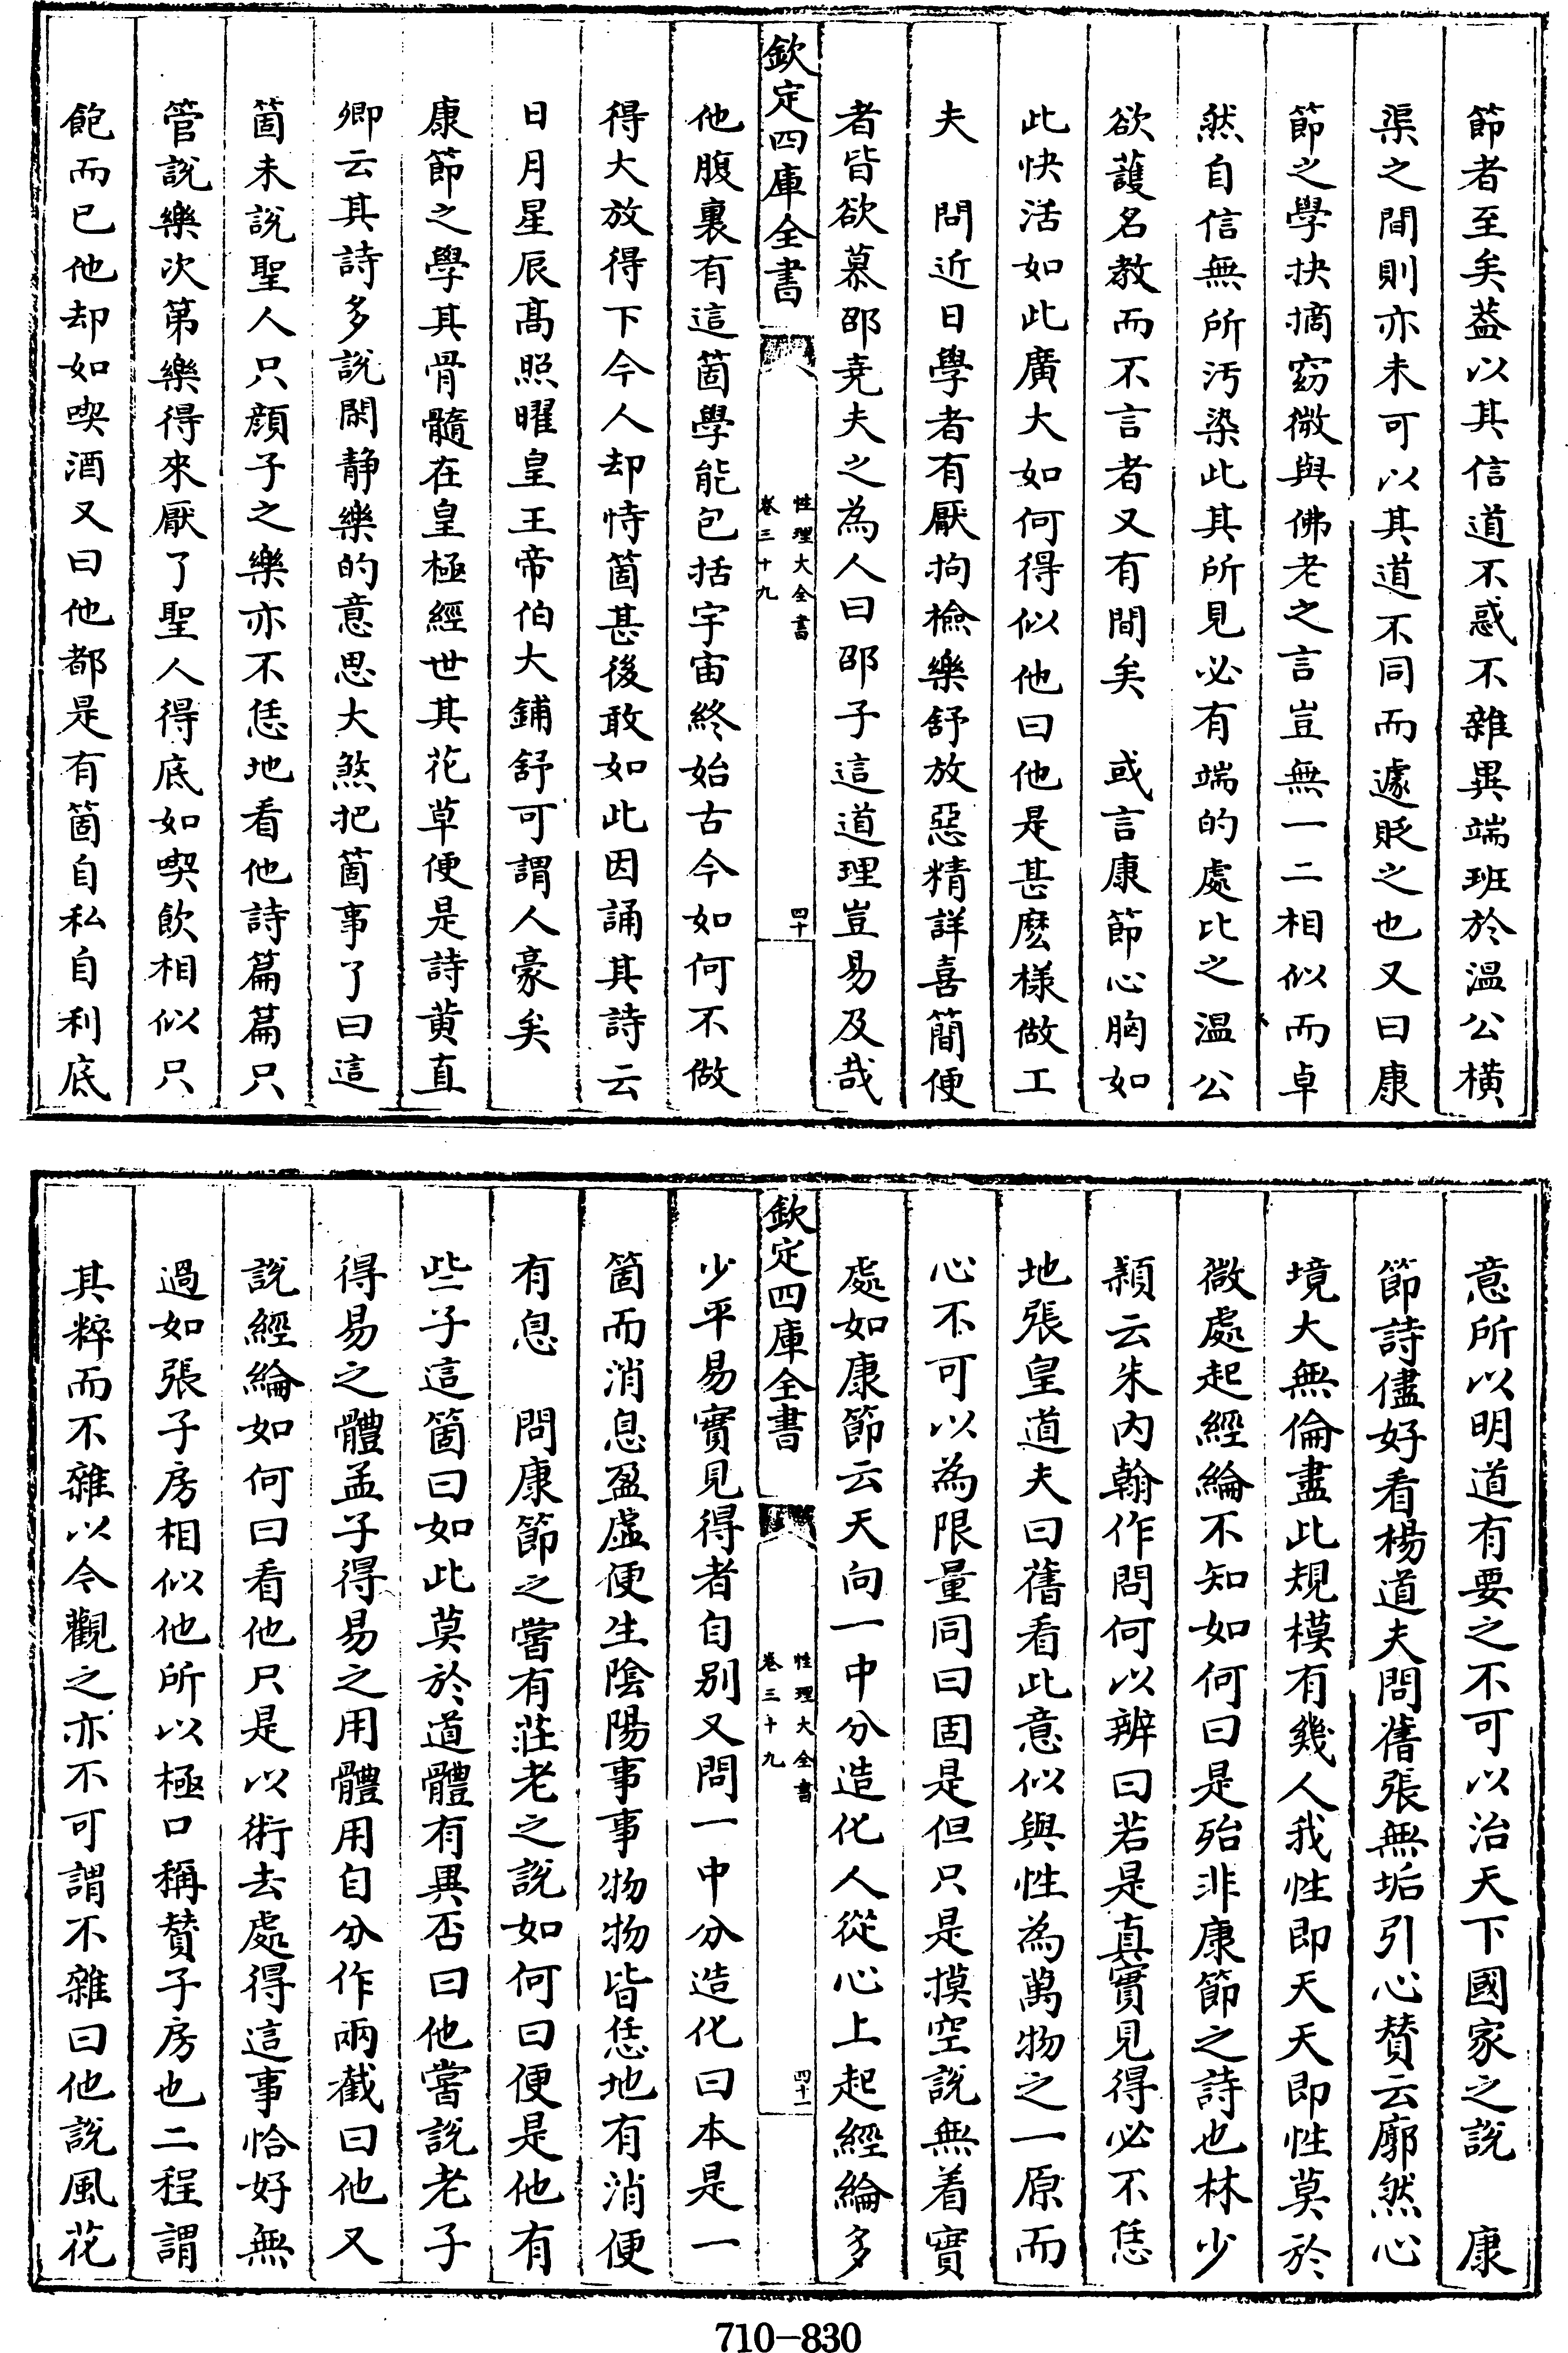 節者至矣葢以其信道不惑不雜異端班於温公橫
渠之間則亦未可以其道不同而遽貶之也又曰康
節之學抉摘窈微與佛老之言豈無一二相似而卓
然自信無所汚染此其所見必有端的處比之温公
欲䕶名教而不言者又有間矣　或言康節心胸如
此快活如此廣大如何得似他曰他是甚麽樣做工
夫　問近日學者有厭拘檢樂舒放惡精詳喜簡便
者皆欲慕邵堯夫之為人曰邵子這道理豈易及哉
欽定四庫全書
性理大全書
卷三十九
四十
他腹裏有這箇學能包括宇宙終始古今如何不做
得大放得下今人却恃箇甚後敢如此因誦其詩云
日月星辰髙照曜皇王帝伯大鋪舒可謂人豪矣
康節之學其骨髓在皇極經世其花草便是詩黄直
卿云其詩多說閑静樂的意思大煞把箇事了曰這
箇未說聖人只顔子之樂亦不恁地看他詩篇篇只
管說樂次第樂得來厭了聖人得底如喫飲相似只
飽而已他却如喫酒又曰他都是有箇自私自利底
意所以明道有要之不可以治天下國家之說　康
節詩儘好看楊道夫問舊張無垢引心賛云廓然心
境大無倫盡此規模有幾人我性即天天即性莫於
微處起經綸不知如何曰是殆非康節之詩也林少
穎云朱内翰作問何以辨曰若是真實見得必不恁
地張皇道夫曰舊看此意似與性為萬物之一原而
心不可以為限量同曰固是但只是摸空說無着實
處如康節云天向一中分造化人從心上起經綸多
欽定四庫全書
性理大全書
卷三十九
四十一
少平易實見得者自别又問一中分造化曰本是一
箇而消息盈虛便生陰陽事事物物皆恁地有消便
有息　問康節之嘗有莊老之說如何曰便是他有
些子這箇曰如此莫於道體有異否曰他嘗說老子
得易之體孟子得易之用體用自分作兩截曰他又
說經綸如何曰看他只是以術去處得這事恰好無
過如張子房相似他所以極口稱賛子房也二程謂
其粹而不雜以今觀之亦不可謂不雜曰他說風花
710-830